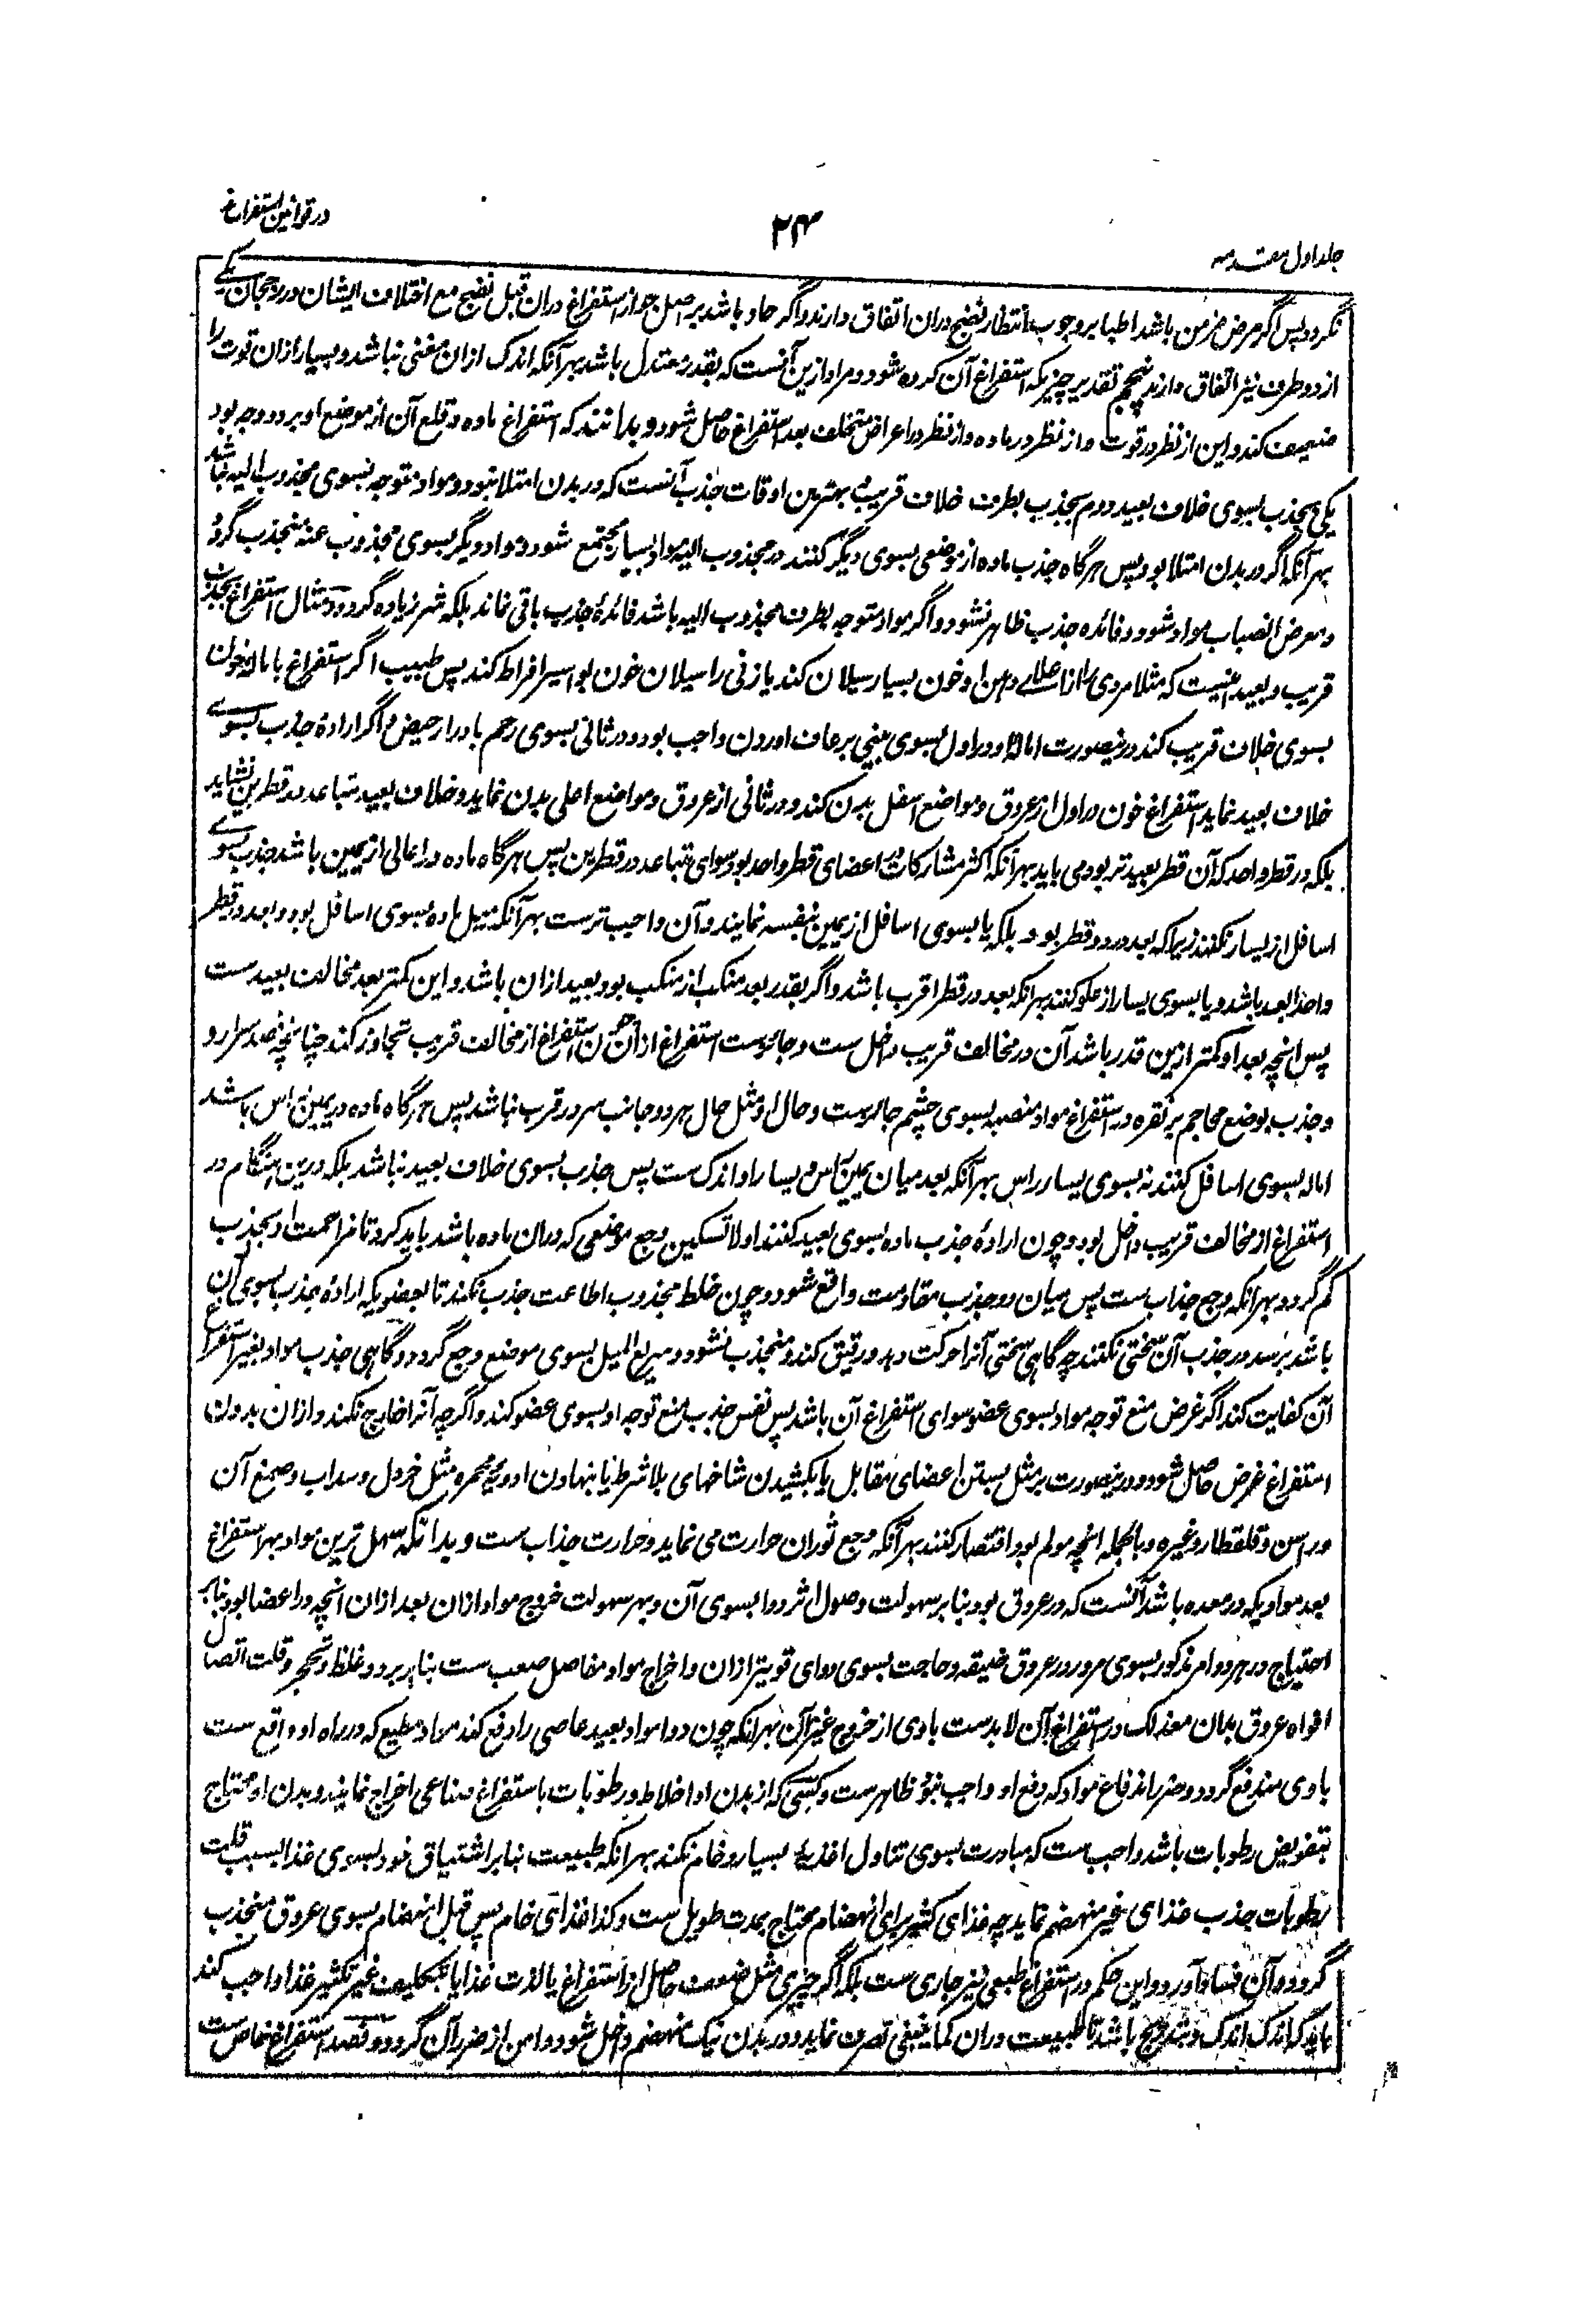 در قوانین استفراغ
۲۴
جلد اول مقدمه
نگردد پس اگر مرض مزمن باشد اطبا بر وجوب انتظار نضج دران اتفاق دارند و اگر حاد باشد بر اصل جواز استفراغ دران قبل نضج مع اختلاف ایشان در رجحان یکے
از دو طرف نیز اتفاق دارند پنجم تقدیر چیزیکه استفراغ آن کرده شود و مراد ازین آنست که بقدر معتدل باشد بهر آنکه اندک ازان مغنی نباشد و بسیار ازان قوت را
ضعیف کند و این از نظر در قوت و از نظر در ماده و از نظر در اعراض متخلف بعد استفراغ حاصل شود و بدانند که استفراغ ماده و قلع آن از موضع او بر دو وجه بود
یکی بجذب بسوی خلاف بعید دوم بجذب بطرف خلاف قریب و بهترین اوقات جذب آنست که در بدن امتلا نبود و مواد متوجه بسوی مجذوب الیه نباشد
بهر آنکه اگر در بدن امتلا بود پس هرگاه جذب ماده از موضعی بسوی دیگر کنند در مجذوب الیه مواد بسیار مجتمع شود و مواد دیگر بسوی مجذوب عنه منجذب گردد
و معرض انصباب مواد شود و فائده جذب ظاهر نشود و اگر مواد متوجه بطرف مجذوب الیه باشد فائدهٔ جذب باقی نماند بلکه شر زیاده گردد و مثال استفراغ بجذب
قریب و بعید اینست که مثلا مردی را از اعلاے دهن او خون بسیار سیلان کند یا زنی را سیلان خون بواسیر افراط کند پس طبیب اگر استفراغ با مالهٔ خون
بسوی خلاف قریب کند درینصورت امالهٔ او در اول بسوی بینی برعاف اوردن واجب بود و در ثانی بسوی رحم بادرار حیض و اگر ارادهٔ جذب بسوے
خلاف بعید نماید استفراغ خون در اول از عروق و مواضع اسفل بدن کند و در ثانی از عروق و مواضع اعلی بدن نماید و خلاف بعید متباعد در قطرین نشاید
بلکه در قطر واحد که آن قطر بعیدتر بود می باید بهر آنکه اکثر مشارکات در اعضای قطر واحد بود سوای متباعد در قطرین پس هرگاه ماده در اعالی از یمین باشد جذب بسوے
اسافل از یسار نکنند زیراکه بعد در دو قطر بود بلکه یا بسوی اسافل از یمین بنفسه نمایند و آن واجب ترست بهر آنکه میل ماده بسوی اسافل بود و بعد در قطر
واحد ابعد باشد و یا بسوی یسار از علو کنند بهر آنکه بعد در قطر اقرب باشد و اگر بقدر بعد منکب از منکب بود بعید ازان باشد و این کمتر بعد مخالف بعید ست
پس انچه بعد او کمتر ازین قدر باشد آن در مخالف قریب داخل ست و جائزست استفراغ ازان چون استفراغ از مخالف قریب تجاوز کند چنانچه فصد سرارو
و جذب بوضع محاجم بر نقره در استفراغ مواد منصبه بسوی چشم جائزست و حال او مثل حال هر دو جانب سر در قرب نباشد پس هرگاه ماده در یمین راس باشد
اماله بسوی اسافل کنند نه بسوی یسار راس بهر آنکه بعد میان یمین راس و یسار او اندک ست پس جذب بسوی خلاف بعید نباشد بلکه درین هنگام در
استفراغ از مخالف قریب داخل بود و چون ارادهٔ جذب ماده بسوی بعید کنند اولا تسکین وجع موضعی که دران ماده باشد باید کرد تا مزاحمت او بجذب
کم گردد بهر آنکه وجع جذاب ست پس میان دو جذب مقاومت واقع شود و چون خلط مجذوب اطاعت جذب نکند تا بعضویکه ارادهٔ بجذب بسوی آن
باشد برسد در جذب آن سختی نکنند چه گاهی سختی آنرا حرکت دهد و رقیق کند و منجذب نشود و سریع المیل بسوی موضع وجع گردد و گاهی جذب مواد بغیر استفراغ
آن کفایت کند اگر غرض منع توجه مواد بسوی عضو سوای استفراغ آن باشد پس نفس جذب منع توجه او بسوی عضو کند و اگرچه آنرا خارج نکند و ازان بدون
استفراغ غرض حاصل شود و درینصورت بر مثل بستن اعضای مقابل یا بکشیدن شاخهای بلا شرط یا بنهادن ادویهٔ محمره مثل خردل و سداب و صمغ آن
و راسن و قلقطار و غیره و بالجمله انچه مولم بود اقتصار کنند بهر آنکه وجع ثوران حرارت می نماید و حرارت جذاب ست و بدانکه سهل ترین مواد بهر استفراغ
بعد موادیکه در معده باشد آنست که در عروق بود بنا بر سهولت وصول اثر دوا بسوی آن و بهر سهولت خروج مواد ازان بعد ازان انچه در اعضا بود بنا بر
احتیاج در هر دو امر مذکور بسوی مرور در عروق ضیقه و حاجت بسوی دوای قویتر ازان و اخراج مواد مفاصل صعب ست بنا بر برد و غلظ و تحجر و قلت اتصال
افواه عروق بدان معذلک در استفراغ آن لابدست با وی از خروج غیر آن بهر آنکه چون دوا مواد بعید عاصی را دفع کند مواد مطیع که در راه او واقع ست
با وی مندفع گردد و ضرر اندفاع مواد که دفع او واجب نبود ظاهرست و کسی که از بدن او اخلاط و رطوبات باستفراغ صناعی اخراج نمایند و بدن او محتاج
بتفویض رطوبات باشد واجب ست که مبادرت بسوی تناول اغذیهٔ بسیار و خام نکند بهر آنکه طبیعت بنا بر اشتیاق خود بسوی غذا بسبب قلت
رطوبات جذب غذای غیر منهضم نماید چه غذای کثیر برای انهضام محتاج بمدت طویل ست و کذا غذای خام پس قبل انهضام بسوی عروق منجذب
گردد و آن فساد آورد و این حکم در استفراغ طبعی نیز جاری ست بلکه اگر چیزی مثل ضعف حاصل از استفراغ یا لذت غذا یا تکلیف غیر تکثیر غذا واجب کند
باید که اندک اندک و بتدریج باشد تا طبیعت دران کما ینبغی تصرف نماید و در بدن نیک منهضم داخل شود و امن از ضرر آن گردد و فصد استفراغ خاص ست